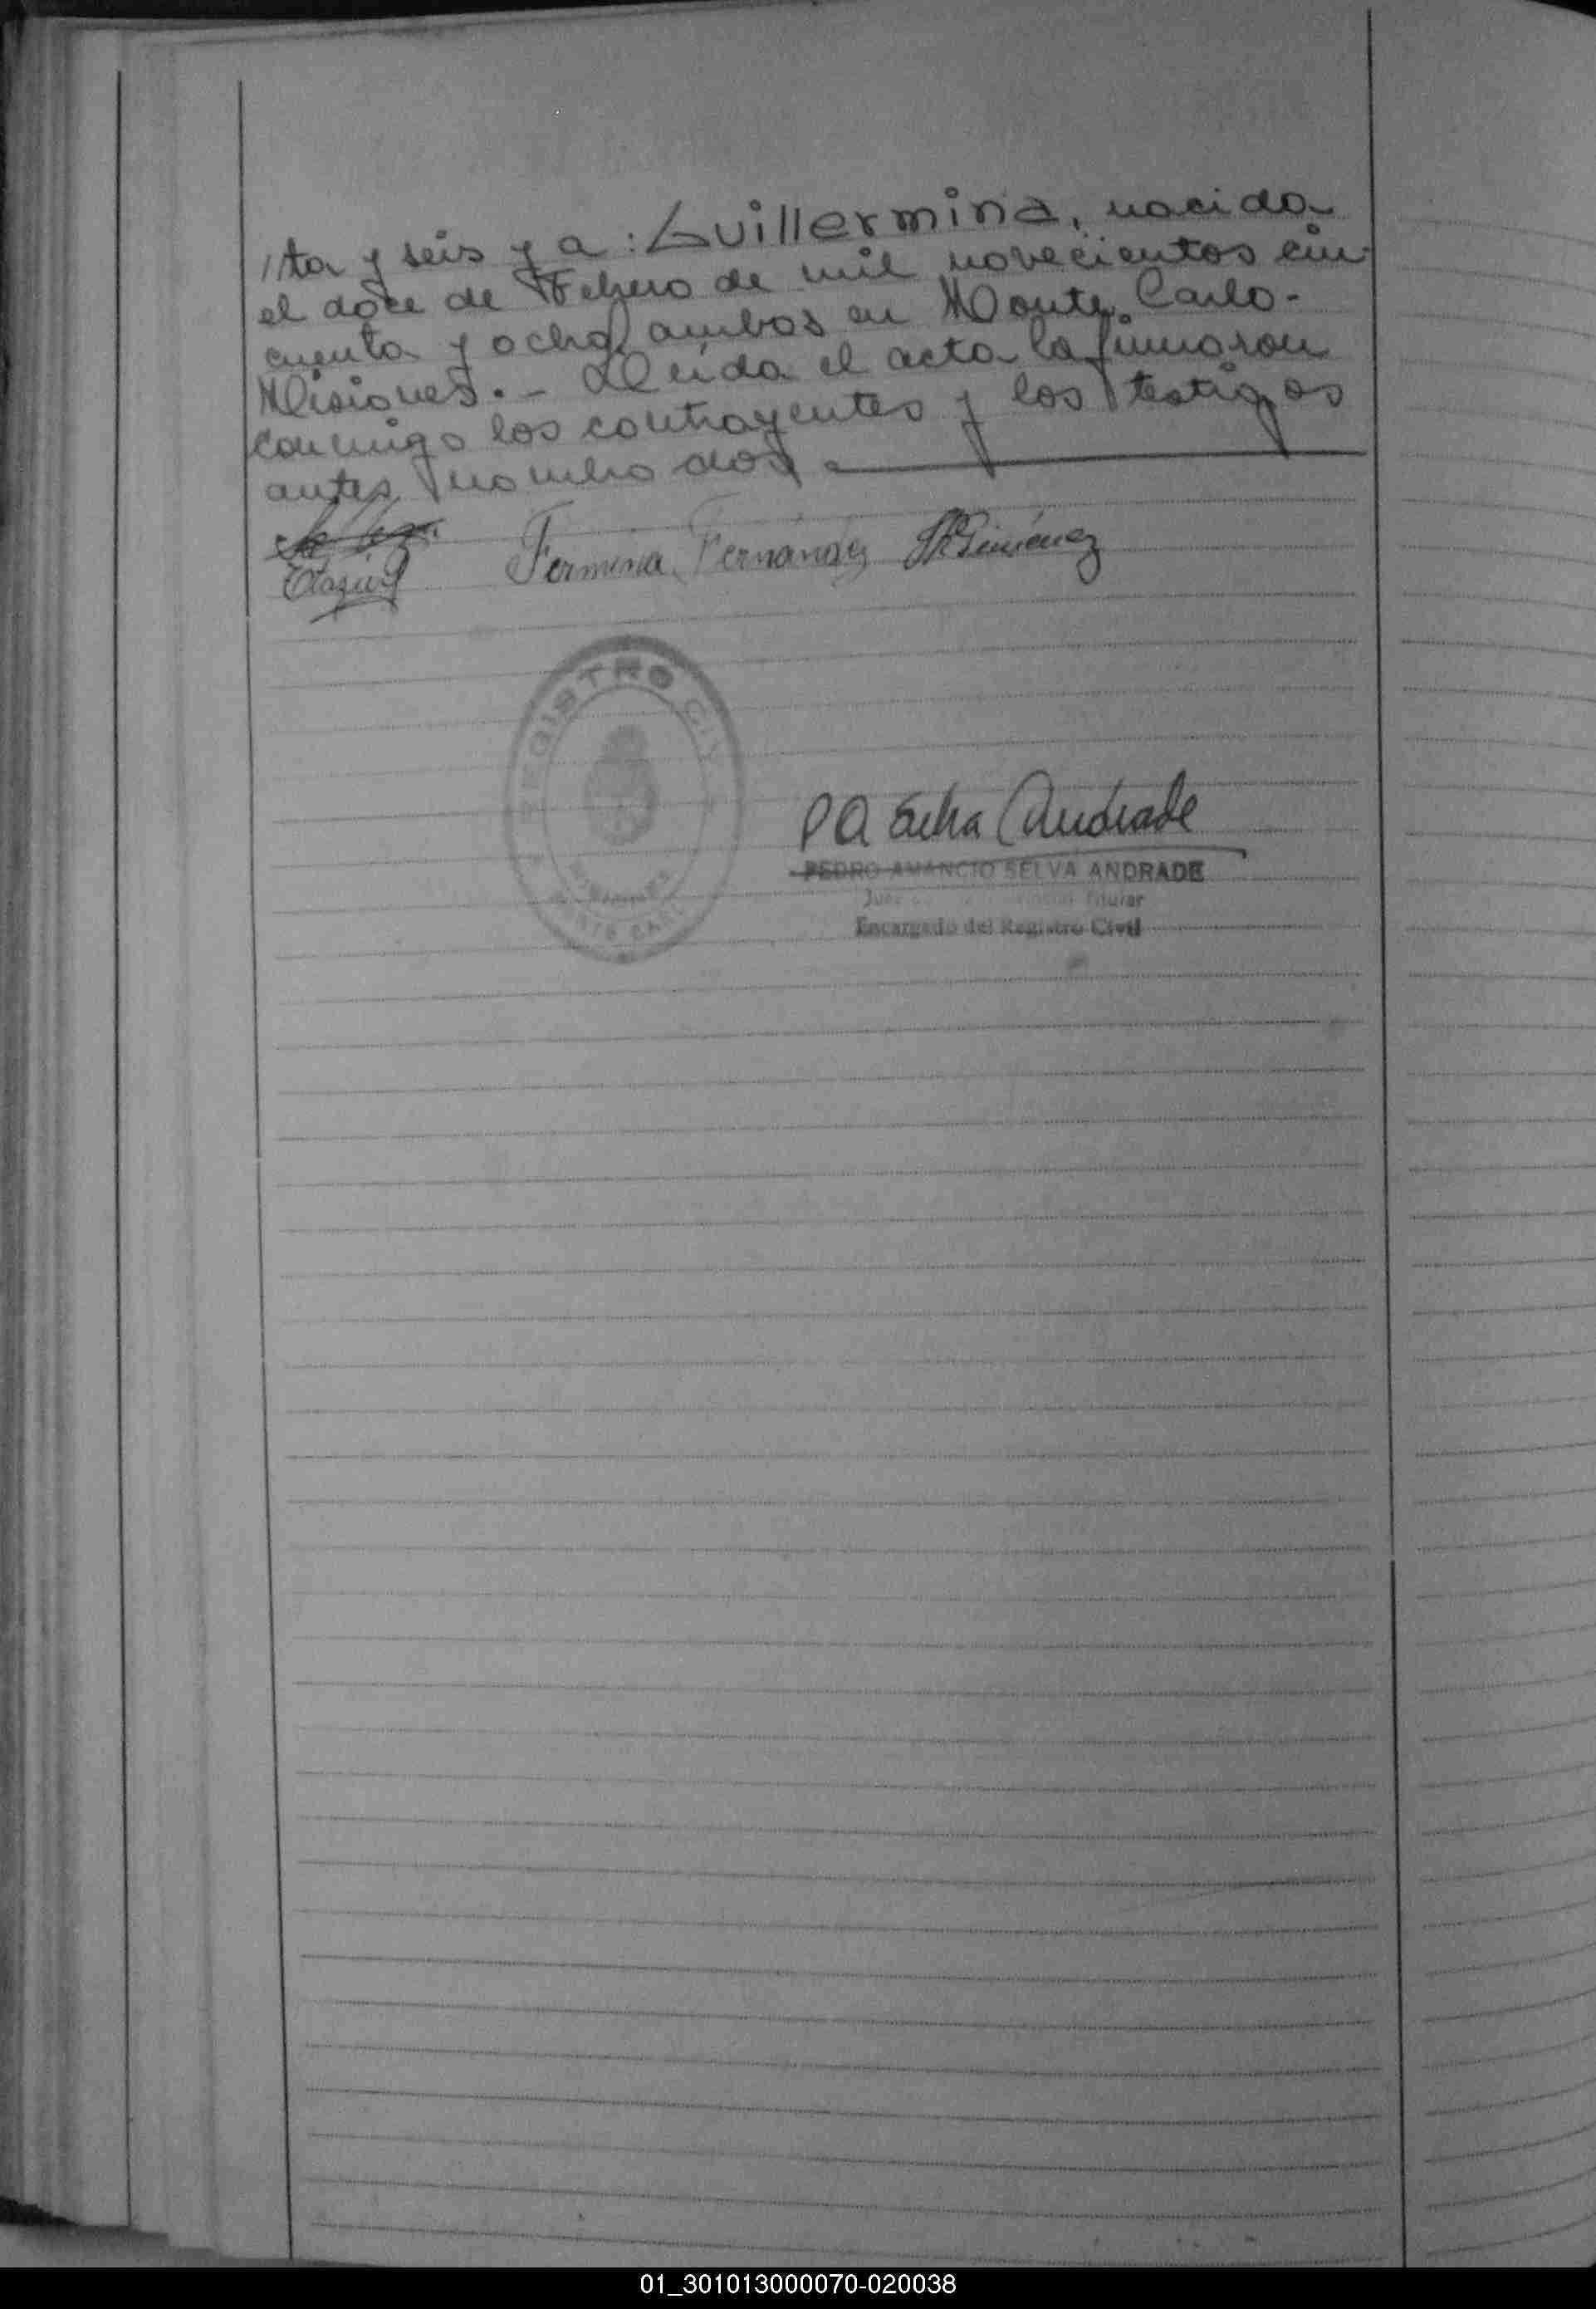 //ta y seis y a: Guillermina, nacida
el doce de Febrero de mil novecientos cin-
cuenta y ocho, ambos en Monte Carlo-
Misiones.- Leída el acta la firmaron
conmigo los contrayentes y los testigos
antes nombrados.
Fermina Fernández Giménez
REGISTRO CIVIL
MISIONES
MONTE CARLO
PA Selva Andrade
PEDRO AMANCIO SELVA ANDRADE
Juez Titular
Encargado del Registro Civil
01_301013000070-020038